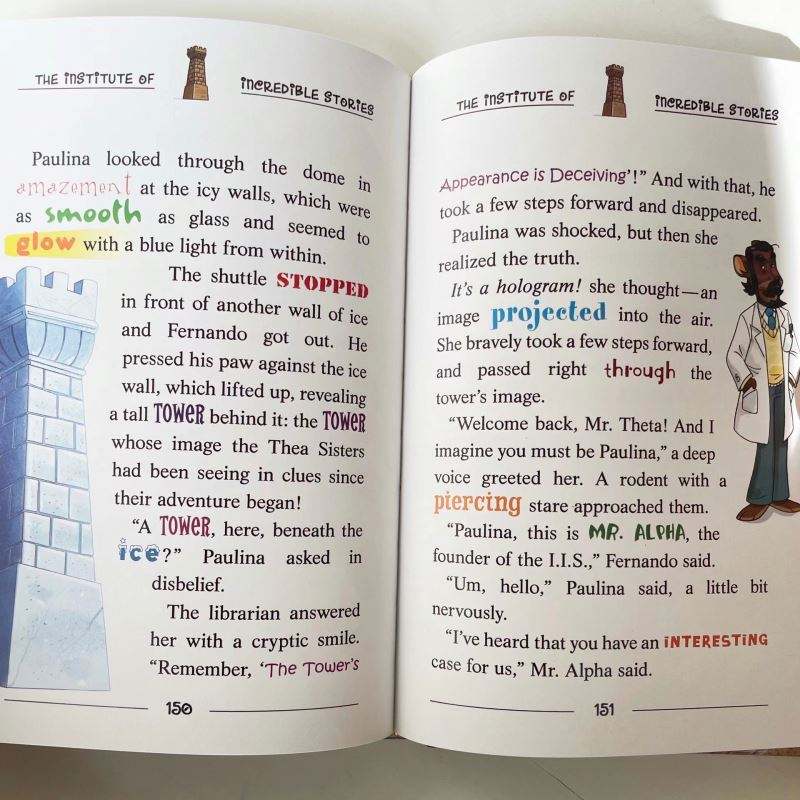 THE INSTITUTE OF INCREDIBLE STORIES
Paulina looked through the dome in
amazement at the icy walls, which were
as smooth as glass and seemed to
glow with a blue light from within.
The shuttle STOPPED
in front of another wall of ice
and Fernando got out. He
pressed his paw against the ice
wall, which lifted up, revealing
a tall TOWER behind it: the TOWER
whose image the Thea Sisters
had been seeing in clues since
their adventure began!
“A TOWER, here, beneath the
ice?” Paulina asked in
disbelief.
The librarian answered
her with a cryptic smile.
“Remember, ‘The Tower’s
150
THE INSTITUTE OF INCREDIBLE STORIES
Appearance is Deceiving’!” And with that, he
took a few steps forward and disappeared.
Paulina was shocked, but then she
realized the truth.
It’s a hologram! she thought—an
image projected into the air.
She bravely took a few steps forward,
and passed right through the
tower’s image.
“Welcome back, Mr. Theta! And I
imagine you must be Paulina,” a deep
voice greeted her. A rodent with a
piercing stare approached them.
“Paulina, this is MR. ALPHA, the
founder of the I.I.S.,” Fernando said.
“Um, hello,” Paulina said, a little bit
nervously.
“I’ve heard that you have an INTERESTING
case for us,” Mr. Alpha said.
151